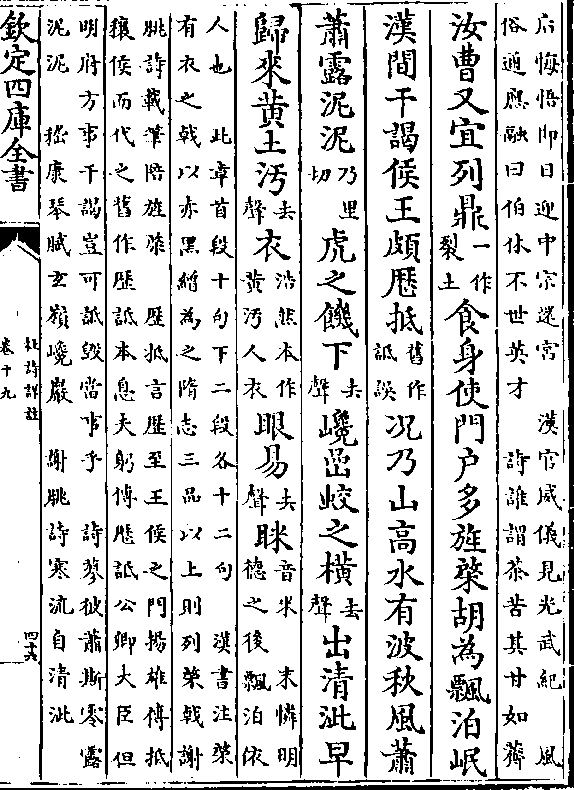 后悔悟即日迎中宗還宮　漢官威儀見光武紀　風
俗通應融曰伯休不世英才　詩誰謂荼苦其甘如薺
汝曹又宜列鼎一作裂土食身使門户多旌棨胡為飄泊岷
漢間干謁侯王頗歷抵舊作詆誤况乃山高水有波秋風蕭
蕭露泥泥乃里切虎之饑下去聲巉嵒蛟之橫去聲出清泚早
歸來黄土汚去聲衣浩然本作黄汚人衣眼易去聲眯音米　末憐明德之後飄泊依
人也　此章首段十句下二段各十二句　漢書注棨
有衣之戟以赤黑繒為之隋志三品以上則列棨戟謝
朓詩載筆陪旌棨　歷抵言歷至王侯之門揚雄傳抵
穰侯而代之舊作歷詆本息夫躬傳歷詆公卿大臣但
明府方事干謁豈可詆毁當事乎　詩蓼彼蕭斯零露
泥泥　嵇康琴賦玄嶺巉巖　謝朓詩寒流自清泚
欽定四庫全書
杜詩詳註
卷十九
四十六